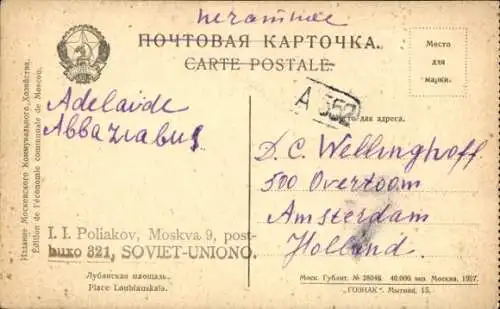 ПОЧТОВАЯ КАРТОЧКА.
CARTE POSTALE.
Место
для
марки.
A 552
Место для адреса.
Издание Московского Коммунального Хозяйства.
Edition de l'économie communale de Moscou.
Adelaide
Abbaziabus
D. C. Wellinghoff
500 Overtoom
Amsterdam
Holland.
I. I. Poliakov, Moskva 9, post-
buxo 321, SOVIET-UNIONO.
Лубянская площадь.
Place Loubianskaïa.
Моск. Гублит. № 28046. 40.000 экз. Москва. 1927.
„ГОЗНАК“. Мытная, 15.